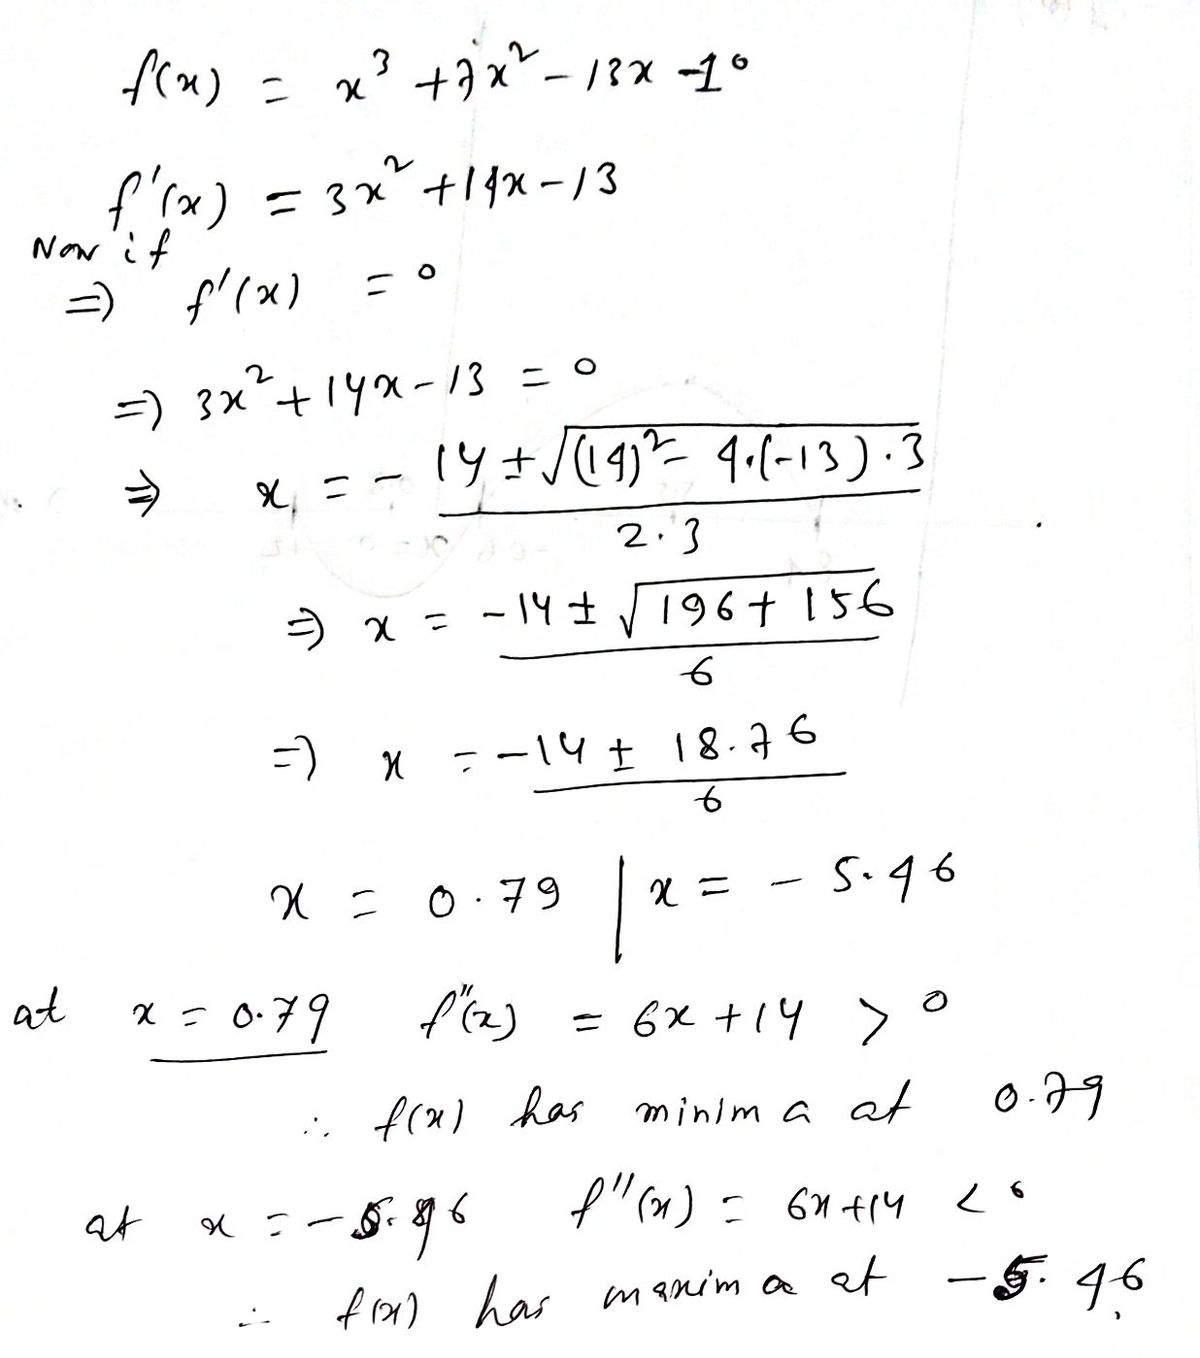 f(x) = x³ + 7x² - 13x - 10
f'(x) = 3x² + 14x - 13
Now if
⇒ f'(x) = 0
⇒ 3x² + 14x - 13 = 0
⇒ x = - 14 ± √(14)² - 4.(-13).3 / 2.3
⇒ x = -14 ± √196 + 156 / 6
⇒ x = -14 ± 18.76 / 6
x = 0.79 | x = - 5.46
at x = 0.79 f''(x) = 6x + 14 > 0
∴ f(x) has minima at 0.79
at x = -5.46 f''(x) = 6x + 14 < 0
∴ f(x) has maxima at -5.46